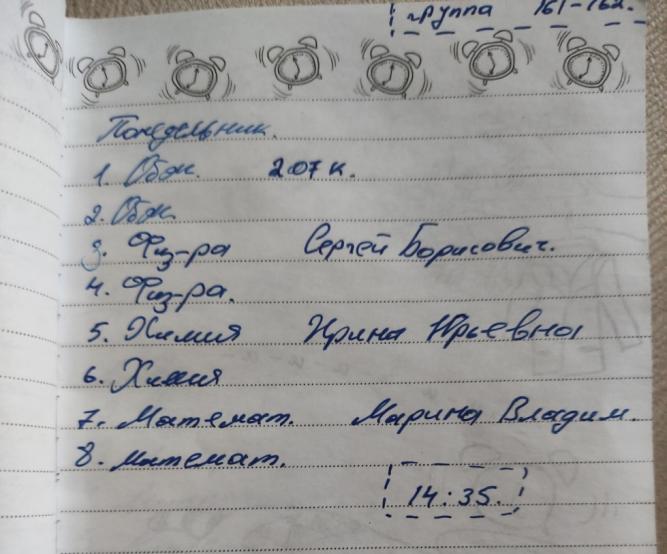 группа 161-162.
Понедельник.
1. Обж. 207 к.
2. Обж
3. Физ-ра Сергей Борисович.
4. Физ-ра.
5. Химия Ирина Юрьевна
6. Химия
7. Математ. Марина Владим.
8. математ.
14:35.